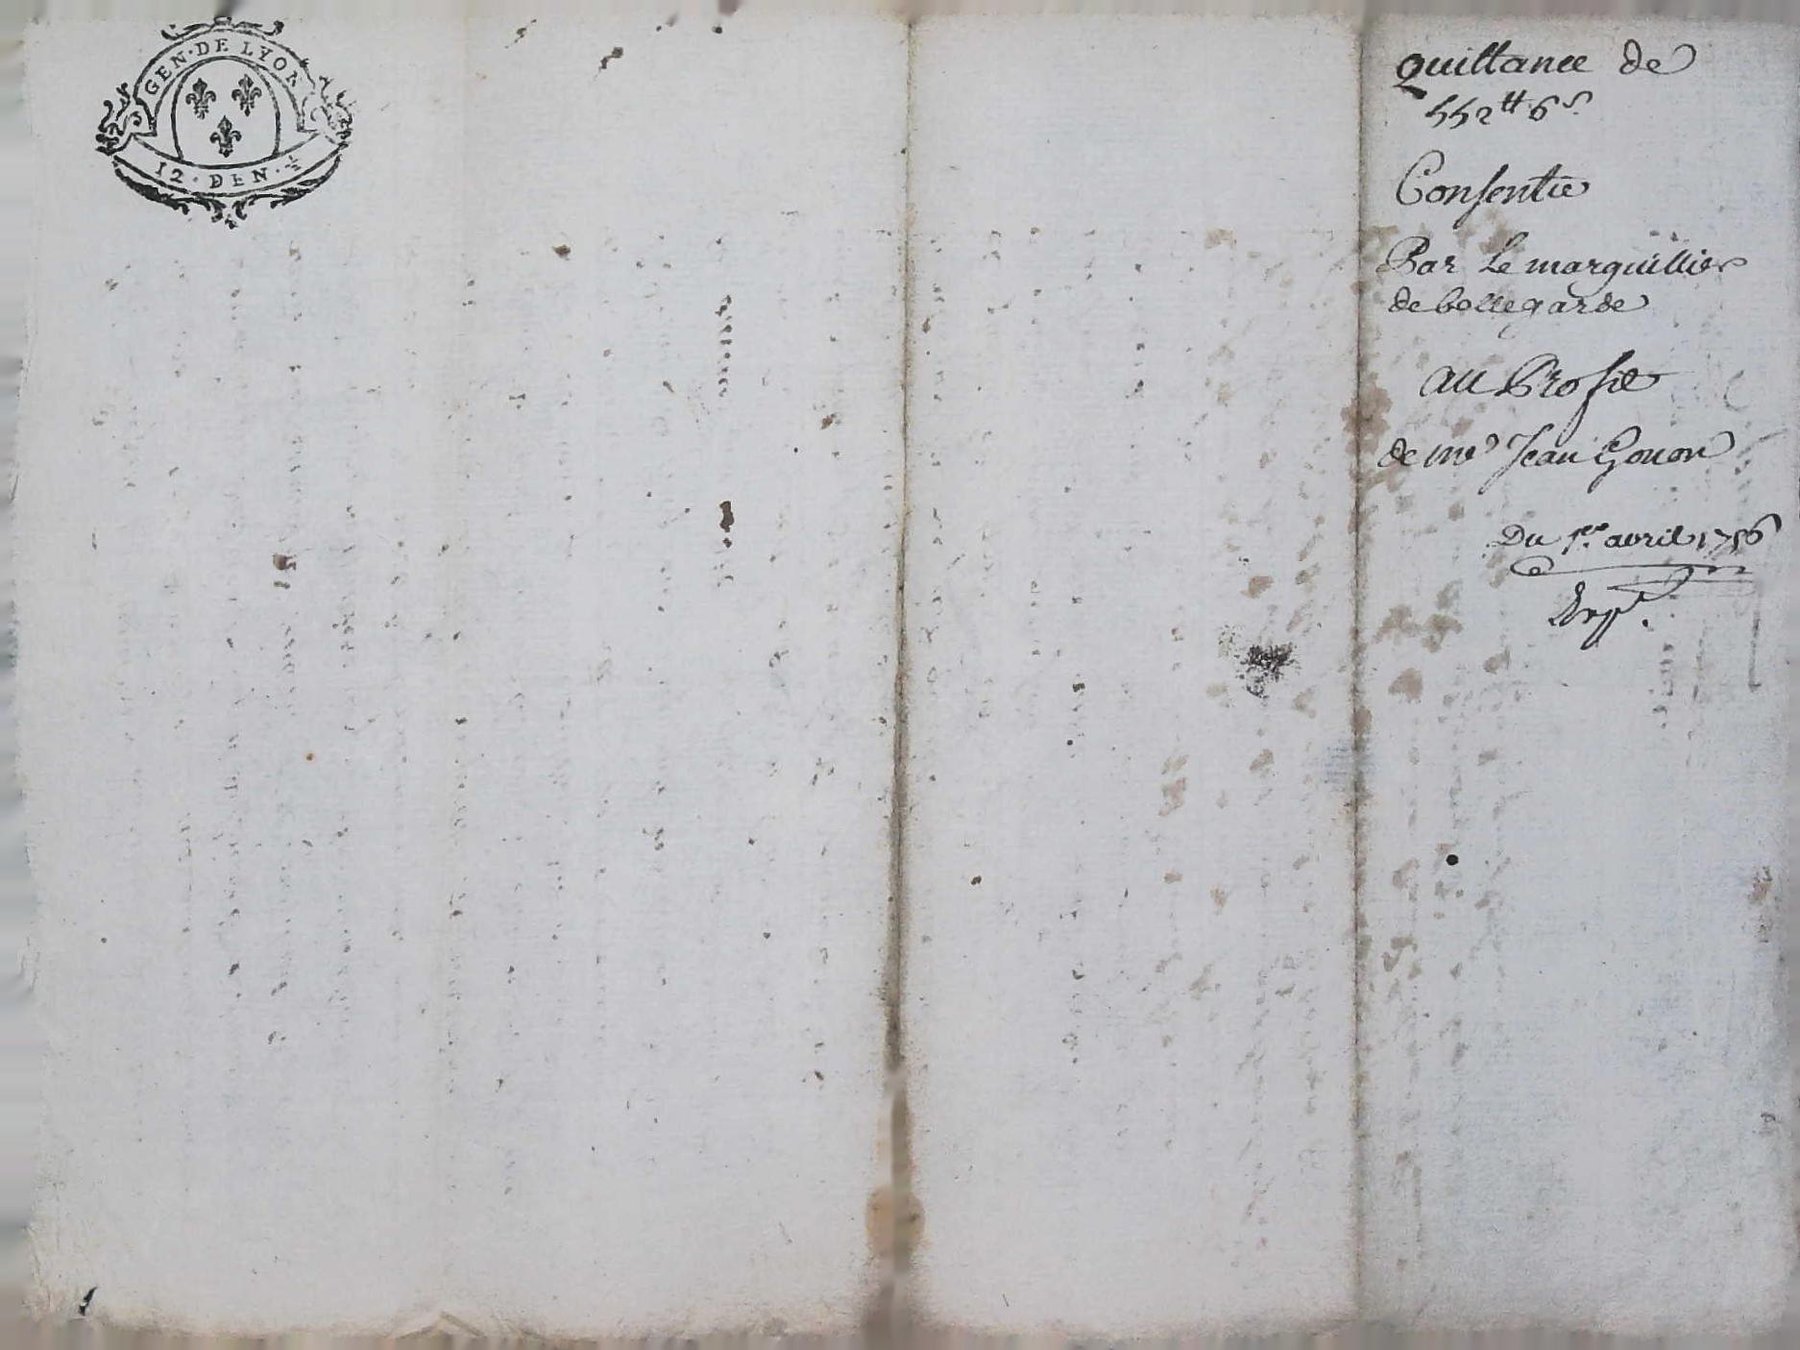 GEN · DE LYON
12 · DEN ·
quittance de
552tt 6s.
Consentie
Par Le marguillier
de bellegarde
au Profit
de me Jean Gonon
Du 1er avril 1756
Expe.